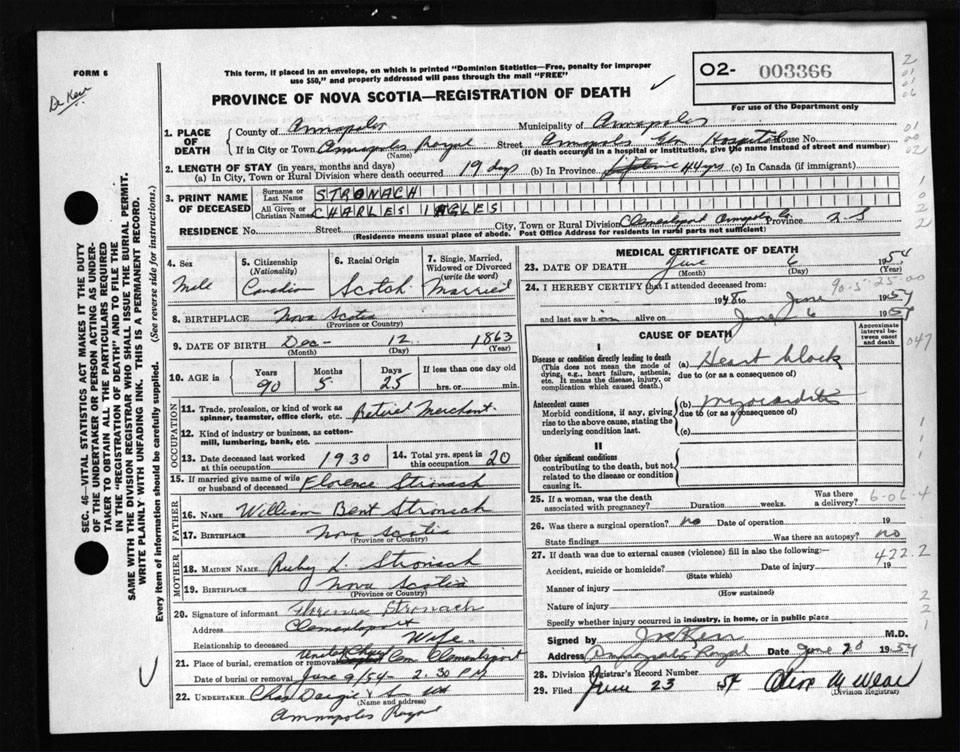 FORM 6
Dr Kerr
This form, if placed in an envelope, on which is printed "Dominion Statistics—Free, penalty for improper
use $50," and properly addressed will pass through the mail "FREE"
PROVINCE OF NOVA SCOTIA—REGISTRATION OF DEATH
02- 003366
For use of the Department only
1. PLACE OF DEATH
County of Annapolis Municipality of Annapolis
If in City or Town Annapolis Royal Street Annapolis Gen Hospital House No.
(Name) (If death occurred in a hospital or institution, give the name instead of street and number)
2. LENGTH OF STAY (in years, months and days)
(a) In City, Town or Rural Division where death occurred 19 days (b) In Province 44 yrs (c) In Canada (if immigrant)
3. PRINT NAME OF DECEASED
Surname or Last Name STRONACH
All Given or Christian Names CHARLES INGLES
RESIDENCE No. Street City, Town or Rural Division Clementsport Annapolis Co Province N.S
(Residence means usual place of abode. Post Office Address for residents in rural parts not sufficient)
4. Sex Male
5. Citizenship (Nationality) Canadian
6. Racial Origin Scotch
7. Single, Married, Widowed or Divorced (write the word) Married
8. BIRTHPLACE Nova Scotia
(Province or Country)
9. DATE OF BIRTH Dec- 12 1863
(Month) (Day) (Year)
10. AGE in Years 90 Months 5 Days 25 If less than one day old hrs. or min.
OCCUPATION
11. Trade, profession, or kind of work as spinner, teamster, office clerk, etc. Retired Merchant.
12. Kind of industry or business, as cotton-mill, lumbering, bank, etc.
13. Date deceased last worked at this occupation 1930
14. Total yrs. spent in this occupation 20
15. If married give name of wife or husband of deceased Florence Stronach
FATHER
16. NAME William Bent Stronach
17. BIRTHPLACE Nova Scotia
(Province or Country)
MOTHER
18. MAIDEN NAME Ruby L. Stronach
19. BIRTHPLACE Nova Scotia
(Province or Country)
20. Signature of informant Florence Stronach
Address Clementsport
Relationship to deceased Wife
21. Place of burial, cremation or removal United Church Cem Clementsport
Date of burial or removal June 9/54 - 2.30 P.M
22. UNDERTAKER Chas Dargie & Son
(Name and address)
Annapolis Royal
MEDICAL CERTIFICATE OF DEATH
23. DATE OF DEATH June 6 1954
(Month) (Day) (Year)
90-5-25-00
24. I HEREBY CERTIFY that I attended deceased from:
1948 to June 1954
and last saw him alive on June 6 1954
CAUSE OF DEATH
Approximate interval between onset and death
047
I
Disease or condition directly leading to death
(This does not mean the mode of dying, e.g., heart failure, asthenia, etc. It means the disease, injury, or complication which caused death.)
(a) Heart block
due to (or as a consequence of)
Antecedent causes
Morbid conditions, if any, giving rise to the above cause, stating the underlying condition last.
(b) Myocarditis
due to (or as a consequence of)
(c)
II
Other significant conditions
contributing to the death, but not related to the disease or condition causing it.
25. If a woman, was the death associated with pregnancy? Duration weeks. Was there a delivery?
6-06-4
26. Was there a surgical operation? no Date of operation 19
State findings Was there an autopsy? no
27. If death was due to external causes (violence) fill in also the following:—
422.2
Accident, suicide or homicide? Date of injury 19
(State which)
Manner of injury
(How sustained)
Nature of injury
Specify whether injury occurred in industry, in home, or in public place
Signed by Kerr M.D.
Address Annapolis Royal Date June 20 1954
28. Division Registrar's Record Number
29. Filed June 23 54
(Division Registrar)
SEC. 46—VITAL STATISTICS ACT MAKES IT THE DUTY
OF THE UNDERTAKER OR PERSON ACTING AS UNDER-
TAKER TO OBTAIN ALL THE PARTICULARS REQUIRED
IN THE "REGISTRATION OF DEATH" AND TO FILE THE
SAME WITH THE DIVISION REGISTRAR WHO SHALL ISSUE THE BURIAL PERMIT.
WRITE PLAINLY WITH UNFADING INK. THIS IS A PERMANENT RECORD.
Every item of information should be carefully supplied. (See reverse side for instructions.)